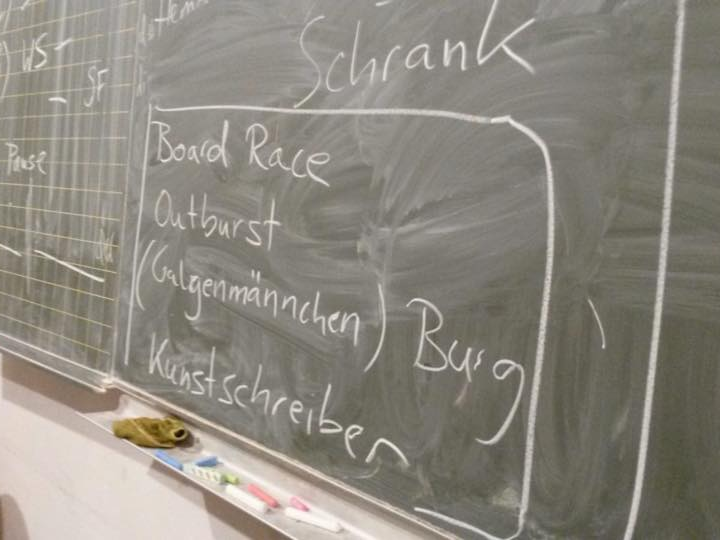 WS
SF
Pause
Schrank
Board Race
Outburst
(Galgenmännchen)
Burg
Kunstschreiben